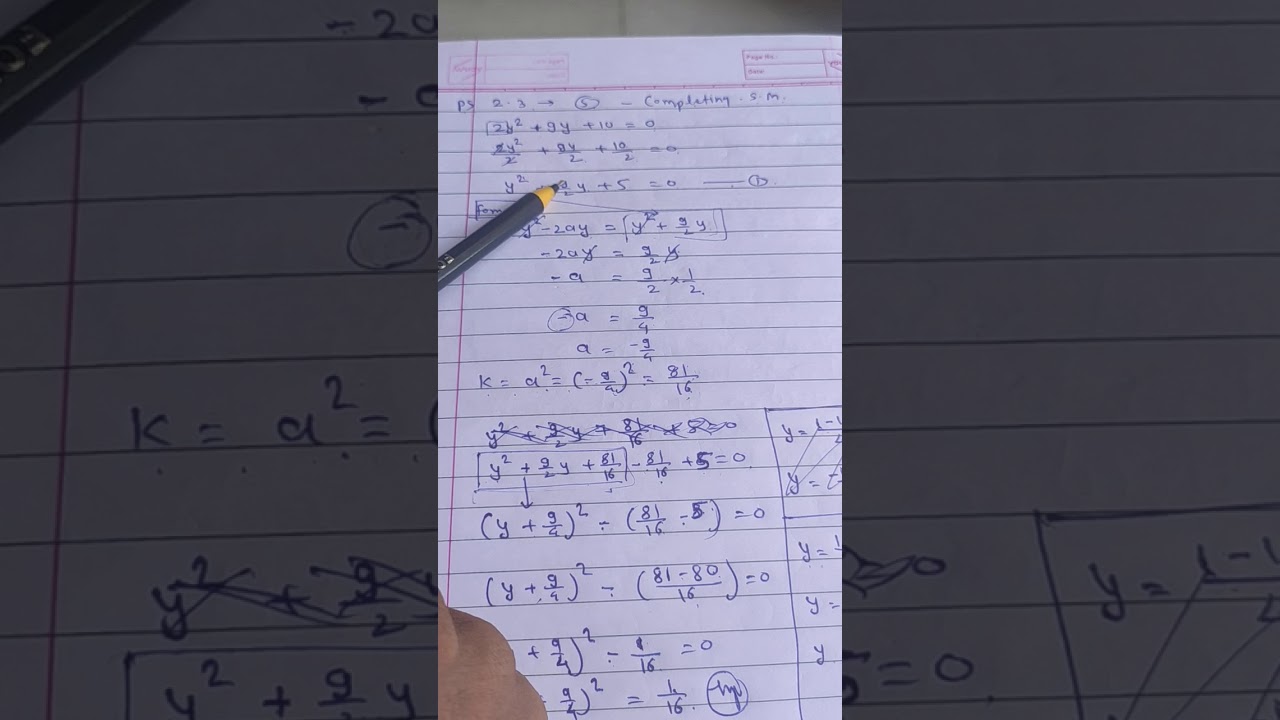 Page No.:
Date
PS 2.3 → ⑤ - Completing S.M.
2y² + 9y + 10 = 0
2y²/2 + 9y/2 + 10/2 = 0
y² 9/2 y + 5 = 0 —— ①
y² - 2ay = y² + 9/2 y
-2ay = 9/2 y
-a = 9/2 × 1/2
-a = 9/4
a = -9/4
K = a² = (-9/4)² = 81/16
y² + 9/2 y + 81/16 + 5 = 0
y² + 9/2 y + 81/16 - 81/16 + 5 = 0
(y + 9/4)² - (81/16 - 5) = 0
(y + 9/4)² - (81 - 80/16) = 0
+ 9/4)² - 1/16 = 0
9/4)² = 1/16
y =
y =
y =
y =
y